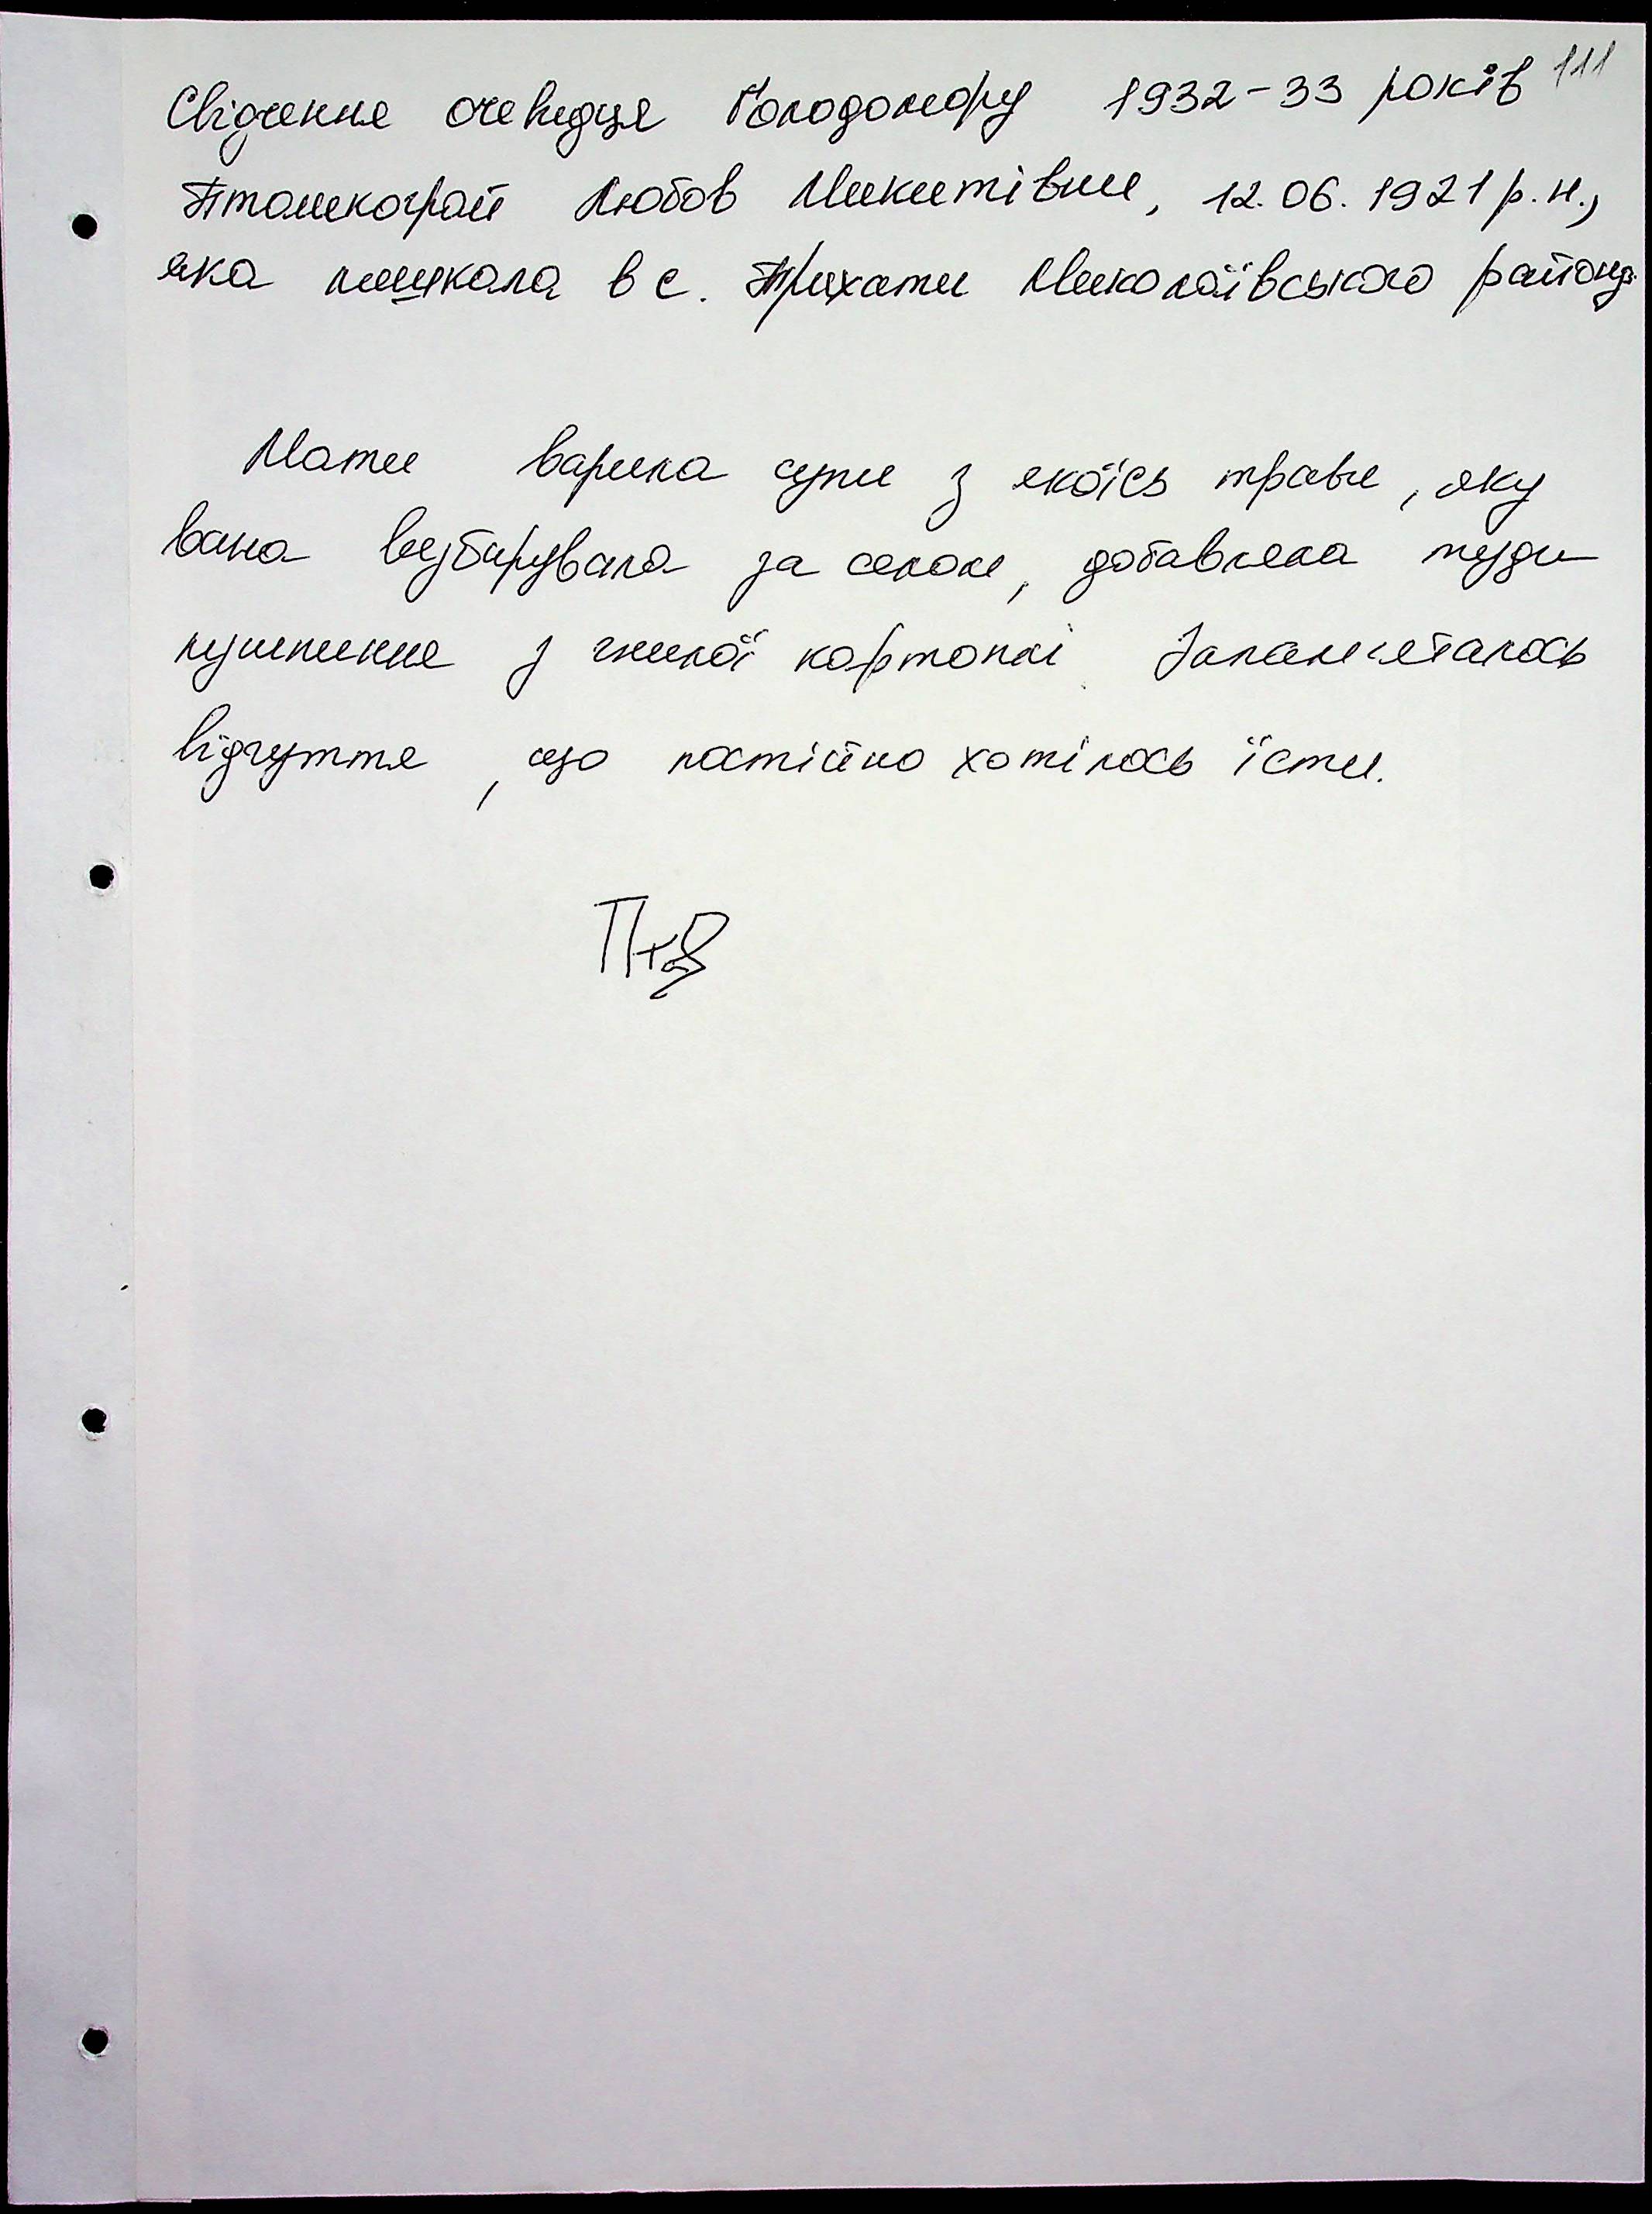 111
Свідчення очевидця Голодомору 1932-33 років
Любов Микитівни, 12.06.1921 р.н.,
яка мешкала в с. Трихати Миколаївського району.
Мати варила супи з якоїсь трави, яку
вона визбирувала за селом, добавляла туди
лушпиння з гнилої картоплі. Запам'яталось
відчуття, що постійно хотілось їсти.